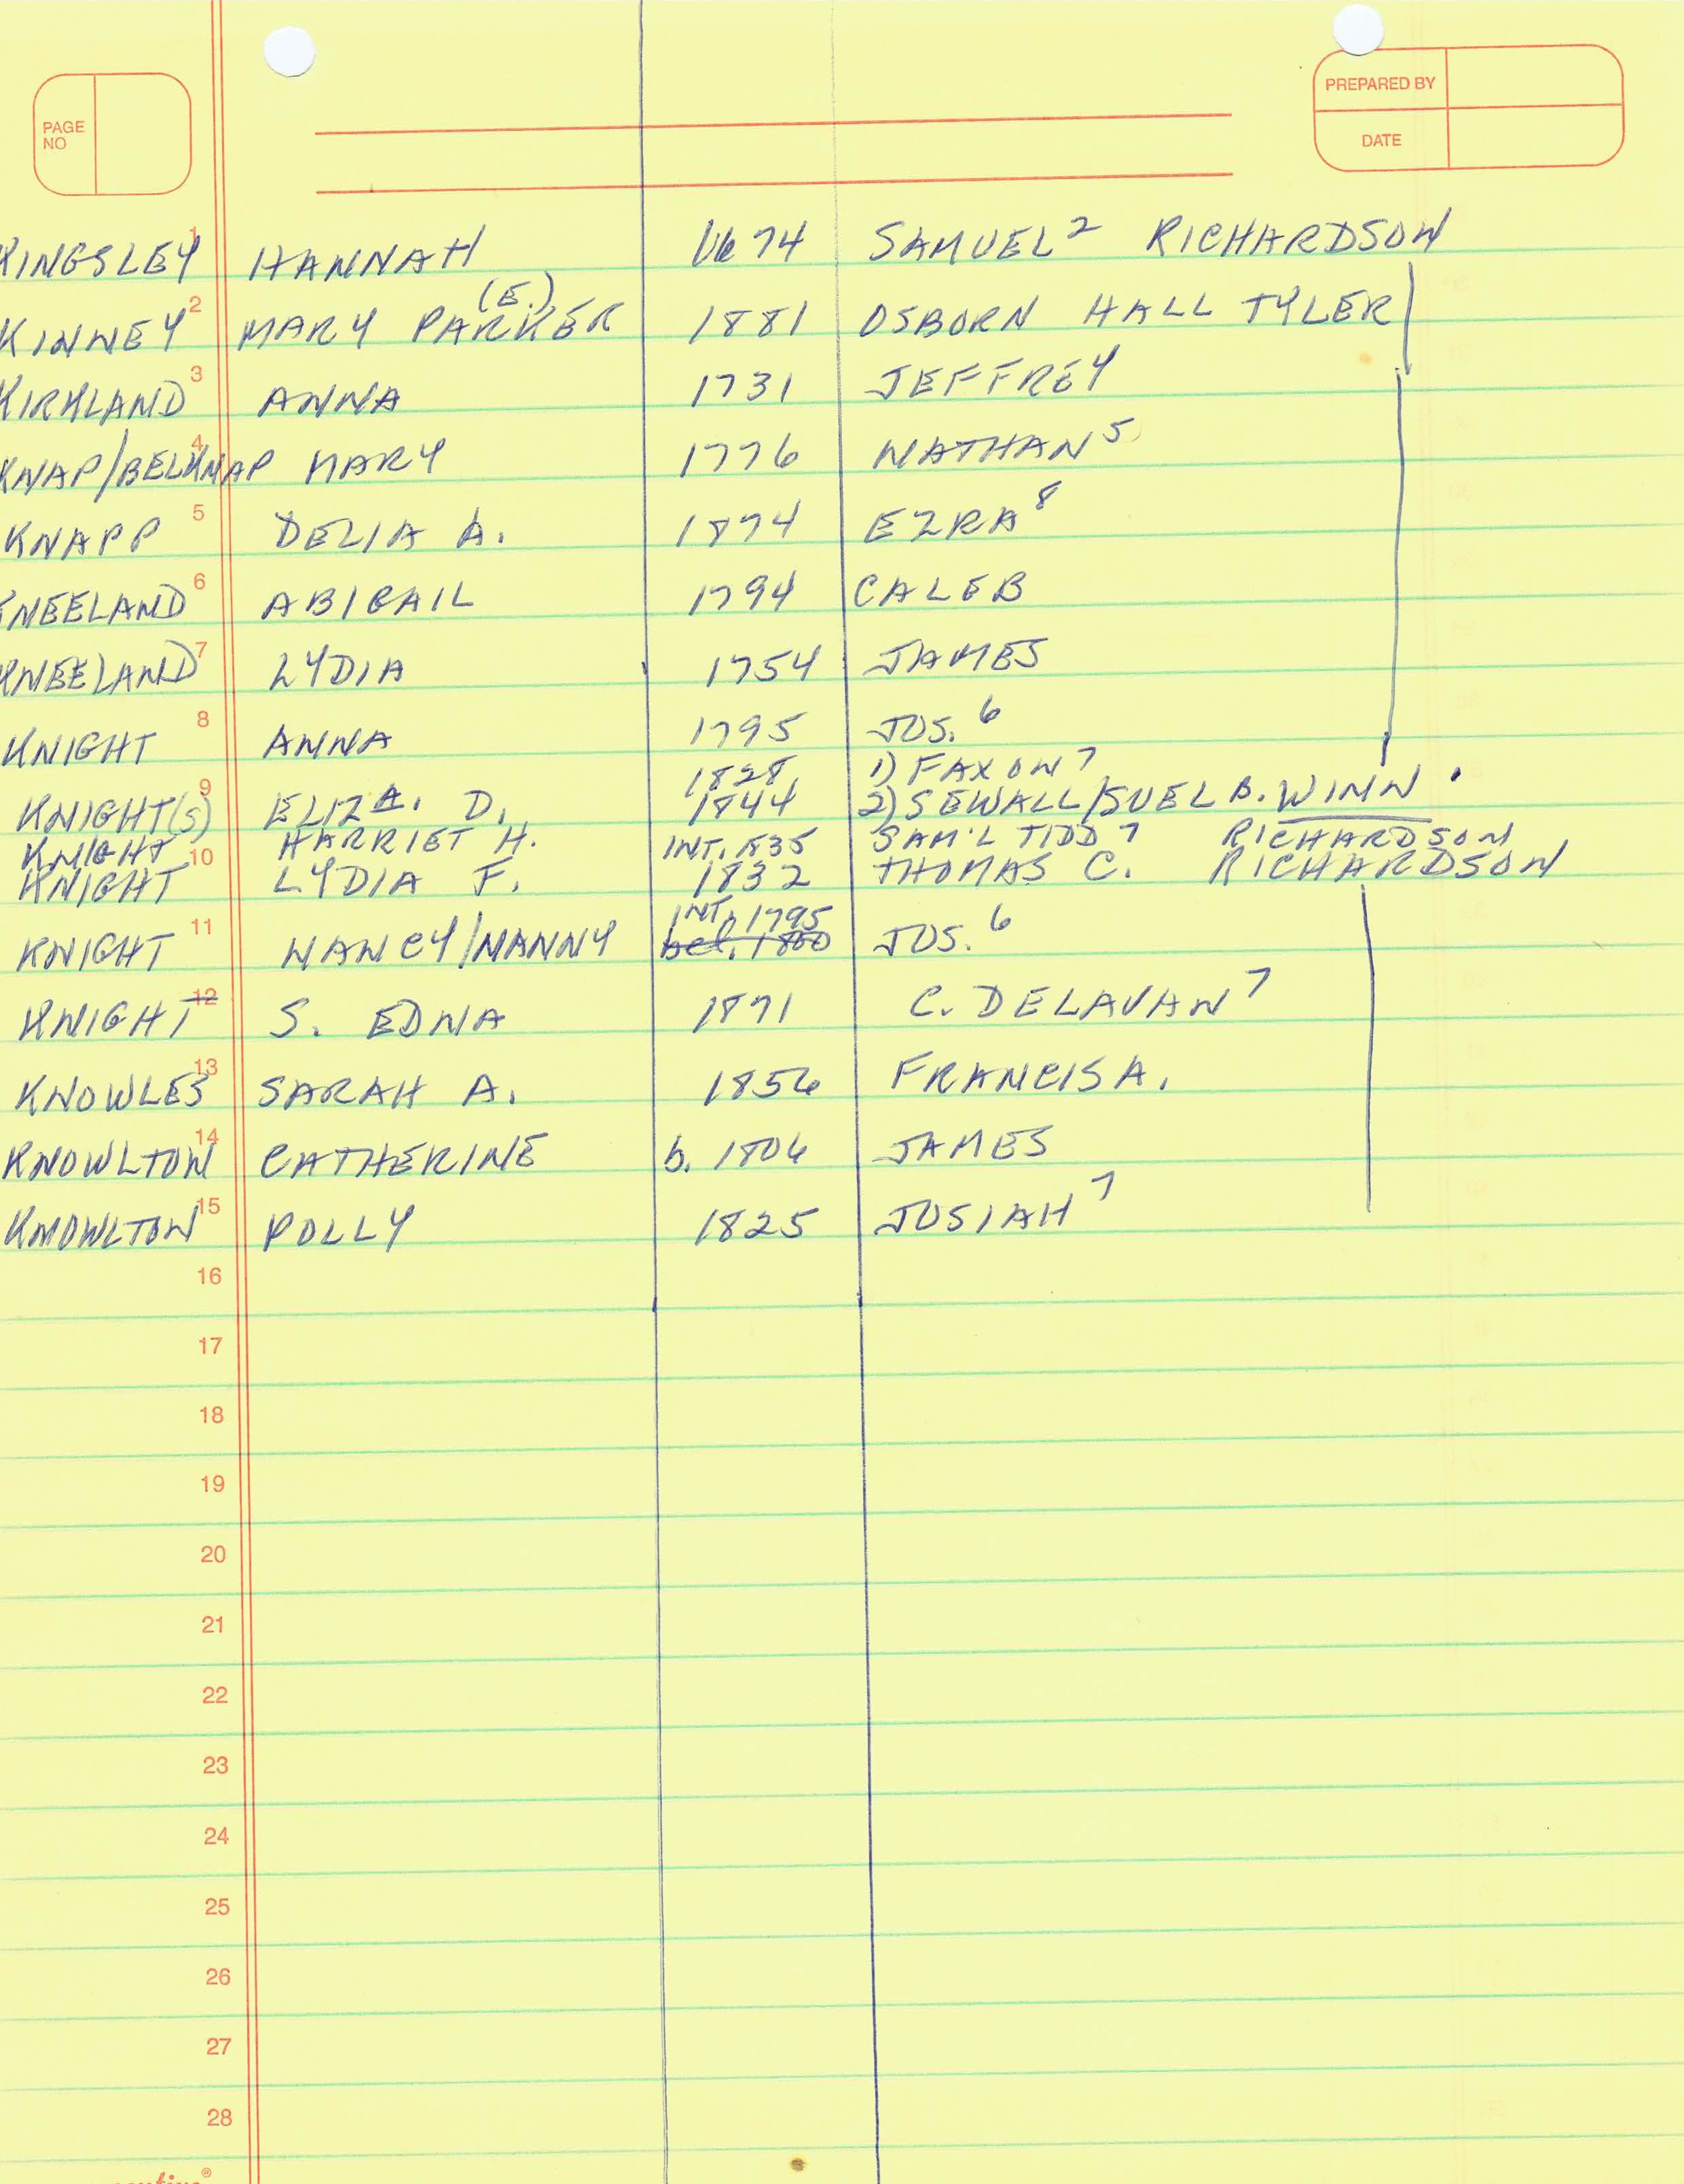 PAGE NO
PREPARED BY
DATE
1 KINGSLEY HANNAH 1674 SAMUEL² RICHARDSON
2 KINNEY MARY PARKER (E.) 1881 OSBORN HALL TYLER
3 KIRKLAND ANNA 1731 JEFFREY
4 KNAP/BELKNAP MARY 1776 NATHAN⁵
5 KNAPP DELIA A. 1874 EZRA⁸
6 KNEELAND ABIGAIL 1794 CALEB
7 KNEELAND LYDIA 1754 JAMES
8 KNIGHT ANNA 1795 JOS.⁶
1828 1) FAXON⁷
9 KNIGHT(S) ELIZA. D. 1844 2) SEWALL/SUEL B. WINN
KNIGHT HARRIET H. INT. 1835 SAM'L TIDD⁷ RICHARDSON
10 KNIGHT LYDIA F. 1832 THOMAS C. RICHARDSON
INT. 1795
11 KNIGHT NANCY/NANNY bef. 1800 JOS.⁶
12 KNIGHT S. EDNA 1871 C. DELAVAN⁷
13 KNOWLES SARAH A. 1856 FRANCIS A.
14 KNOWLTON CATHERINE b. 1806 JAMES
15 KNOWLTON POLLY 1825 JOSIAH⁷
16
17
18
19
20
21
22
23
24
25
26
27
28